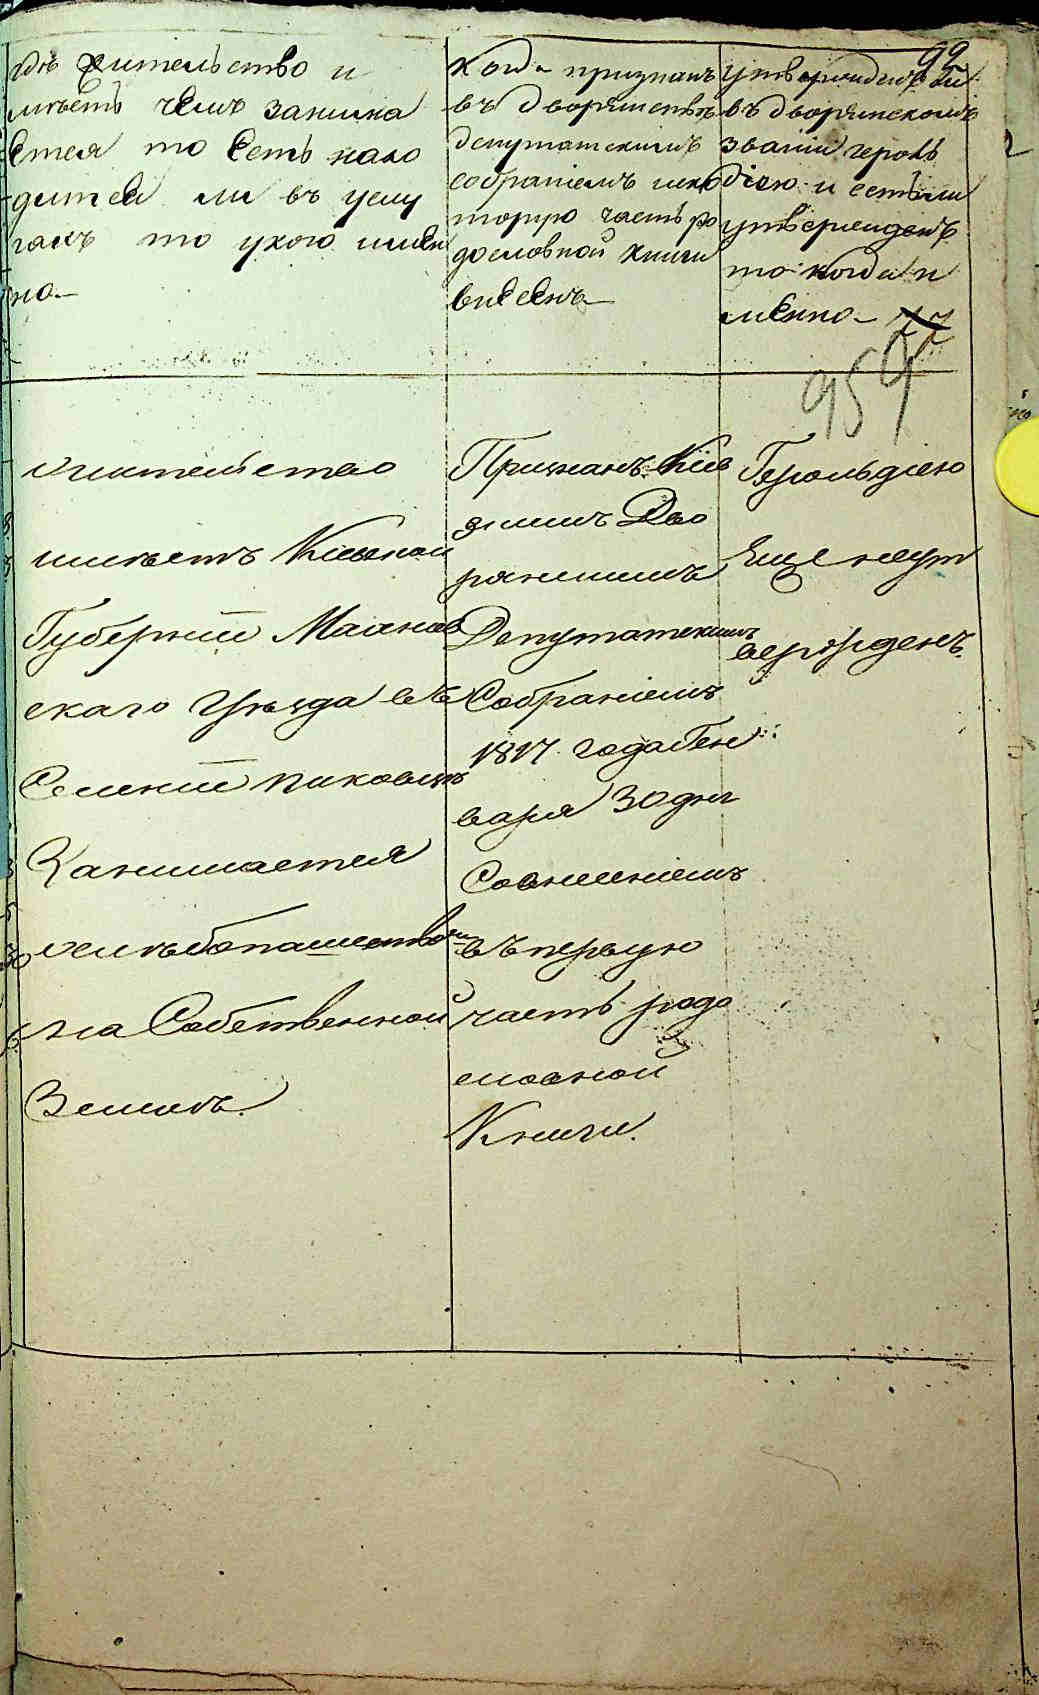 92
гдѣ жительство и
мѣетъ чѣмъ занима
ется то есть нахо
дится ли въ услу
гахъ то укого имен
но.
Когда признанъ
въ дворянствѣ
депутатскимъ
собраніемъ ивко
торую часть ро
дословной книги
внесенъ
утвержденъ ли
въ дворянскомъ
званіи героль
діею и естьли
утвержденъ
то когда и
мѣнно
77
959
Жительство
имѣетъ Кіевской
Губерніи Махнов
скаго Уѣзда въ
Селеніи Пиковцѣ
Занимается
хлѣбопашествомъ
на Собственной
Землѣ.
Признанъ Кіев
скимъ Дво
рянскимъ
Депутатскимъ
Собраніемъ
1817 года Ген
варя 30 дня
Совнесеніемъ
въ первую
часть родо
словной
Книги.
Герольдіею
Еще неут
вержденъ.